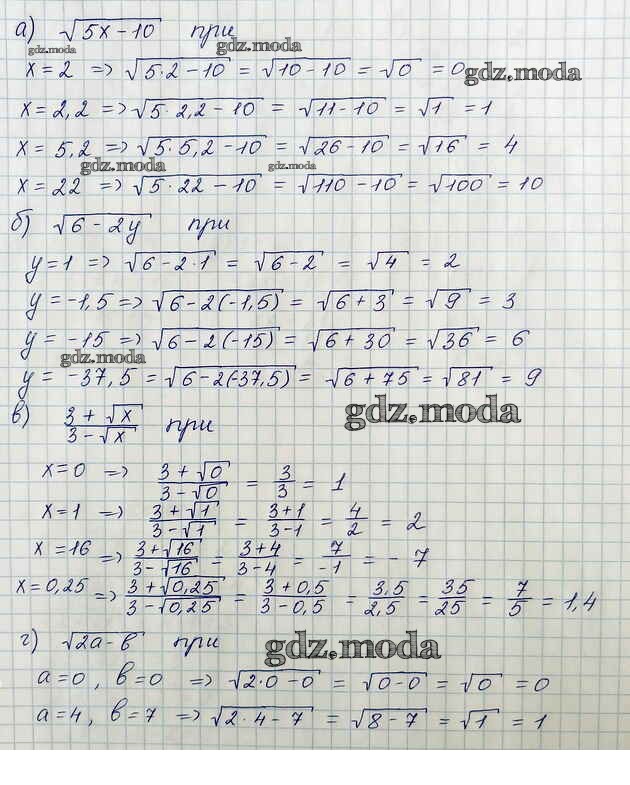 а) √(5x − 10) при
gdz.moda gdz.moda
x = 2 => √(5·2 − 10) = √(10 − 10) = √0 = 0 gdz.moda
x = 2,2 => √(5·2,2 − 10) = √(11 − 10) = √1 = 1
x = 5,2 => √(5·5,2 − 10) = √(26 − 10) = √16 = 4
gdz.moda gdz.moda
x = 22 => √(5·22 − 10) = √(110 − 10) = √100 = 10
б) √(6 − 2y) при
y = 1 => √(6 − 2·1) = √(6 − 2) = √4 = 2
y = −1,5 => √(6 − 2(−1,5)) = √(6 + 3) = √9 = 3
y = −15 => √(6 − 2(−15)) = √(6 + 30) = √36 = 6
gdz.moda
y = −37,5 = √(6 − 2(−37,5)) = √(6 + 75) = √81 = 9
в) (3 + √x)/(3 − √x) при gdz.moda
x = 0 => (3 + √0)/(3 − √0) = 3/3 = 1
x = 1 => (3 + √1)/(3 − √1) = (3+1)/(3−1) = 4/2 = 2
x = 16 => (3 + √16)/(3 − √16) = (3+4)/(3−4) = 7/−1 = −7
x = 0,25 => (3 + √0,25)/(3 − √0,25) = (3 + 0,5)/(3 − 0,5) = 3,5/2,5 = 35/25 = 7/5 = 1,4
г) √(2a − b) при gdz.moda
a = 0, b = 0 => √(2·0 − 0) = √(0 − 0) = √0 = 0
a = 4, b = 7 => √(2·4 − 7) = √(8 − 7) = √1 = 1